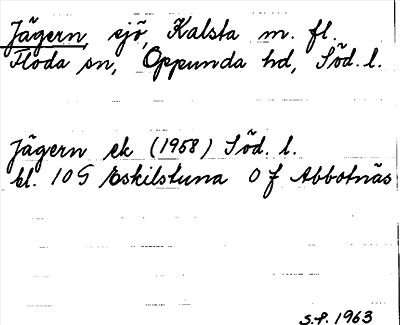 Jägern, sjö, Kalsta m. fl.
Floda sn, Oppunda hd, Söd. l.
Jägern ek (1958) Söd. l.
bl. 10 G Eskilstuna 0 f Abbotnäs
S.P. 1963